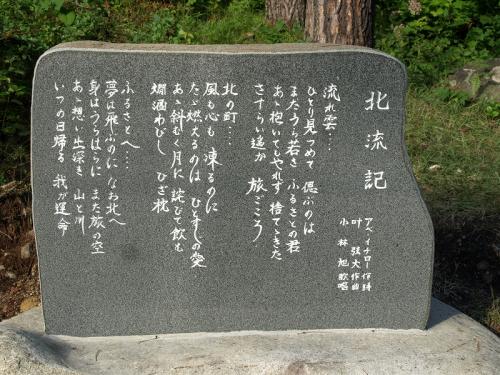 北流記
アベイナロー作詩
叶弦大作曲
小林旭歌唱
流れ雲…
ひとり見つめて 偲ぶのは
まだうら若き ふるさとの君
あゝ抱いてもやれず 捨てゝきた
さすらい遙か 旅ごころ
北の町…
風も心も 凍るのに
たゞ燃えるのは ひとすじの愛
あゝ斜むく月に 詫びて飲む
燗酒わびし ひざ枕
ふるさとへ…
夢は飛ぶのに なお北へ
身はうらはらに また旅の空
あゝ想い出深き 山と川
いつの日帰る 我が運命